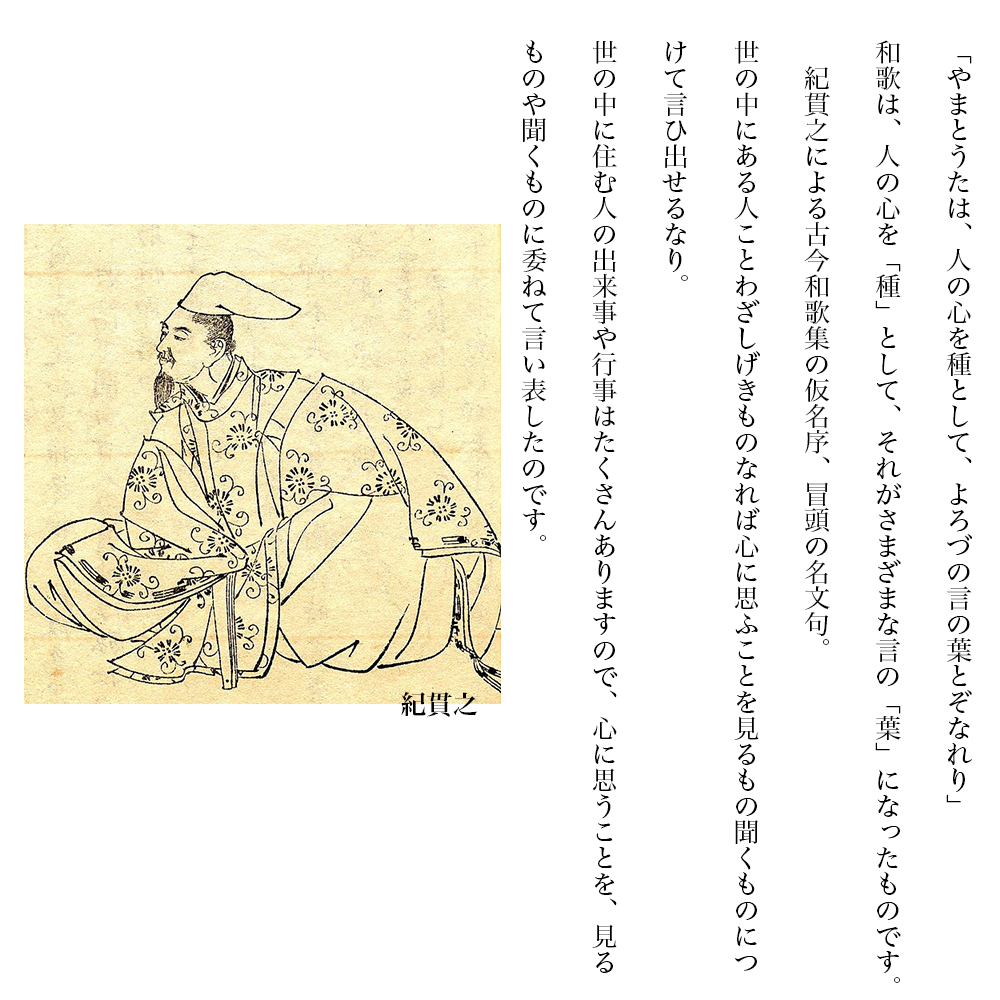 「やまとうたは、人の心を種として、よろづの言の葉とぞなれり」
和歌は、人の心を「種」として、それがさまざまな言の「葉」になったものです。
紀貫之による古今和歌集の仮名序、冒頭の名文句。
世の中にある人ことわざしげきものなれば心に思ふことを見るもの聞くものにつ
けて言ひ出せるなり。
世の中に住む人の出来事や行事はたくさんありますので、心に思うことを、見る
ものや聞くものに委ねて言い表したのです。
紀貫之